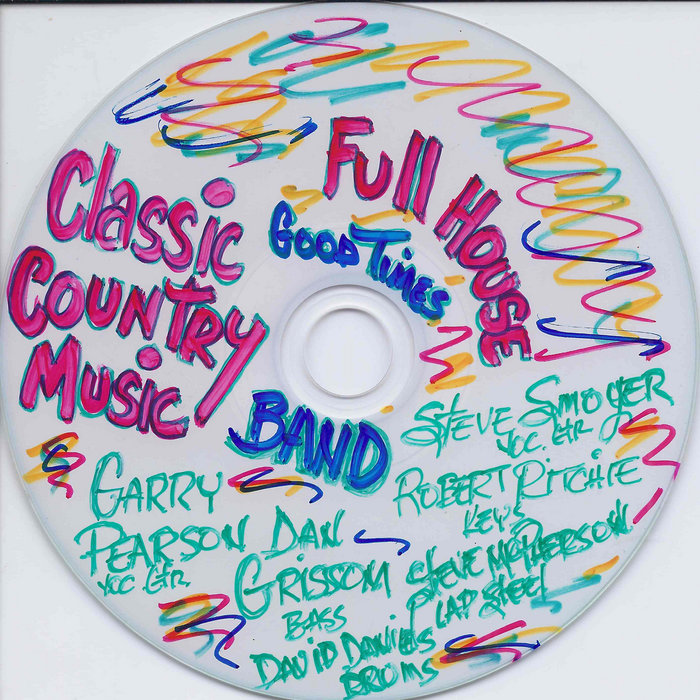 Full House
Good Times
Classic
Country
Music
Band
Steve Smoyer
Voc. Gtr
Robert Ritchie
Keys
Garry
Pearson
Voc. Gtr.
Dan
Grissom
Bass
Steve Motherson
Lap Steel
David Daniels
Drums